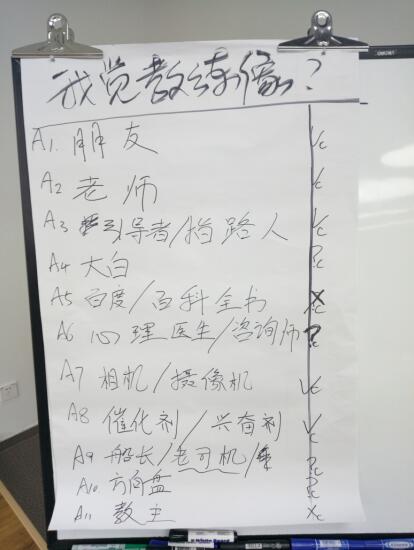 我觉教练像?
A1. 朋友 √c
A2 老师 √c
A3 引导者/指路人 √c
A4 大白 ?c
A5 百度/百科全书 Xc
A6 心理医生/咨询师 ?c
A7 相机/摄像机 √c
A8 催化剂/兴奋剂 √c
A9 船长/老司机/ ?c
A10. 方向盘 ?c
A11 教主 Xc